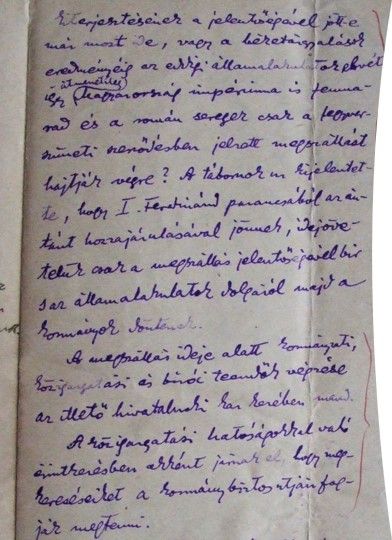 kiterjesztésének a jelentőségével jött-e
már most ide, vagy a béketárgyalások
eredményéig az eddigi államalakulatok
átmenetileg
Magyarország impériuma is fenma-
rad és a román sereg csak a fegyver-
szüneti szerződésben jelzett megszállást
hajtják végre? A tábornok úr kijelentet-
te, hogy I. Ferdinánd parancsából az án-
tánt hozzájárulásával jönnek, idejöve-
telük csak a megszállás jelentőségével bir
s az államalakulatok dolgáról majd a
kormányok döntenek.
A megszállás ideje alatt kormányzati,
közigazgatási és birói teendők végzése
az illető hivatalnoki kar kezében marad.
A közigazgatási hatóságokkal való
érintkezésben akként járnak el, hogy meg-
kereséseiket a kormánybiztos utján fog-
ják megtenni.